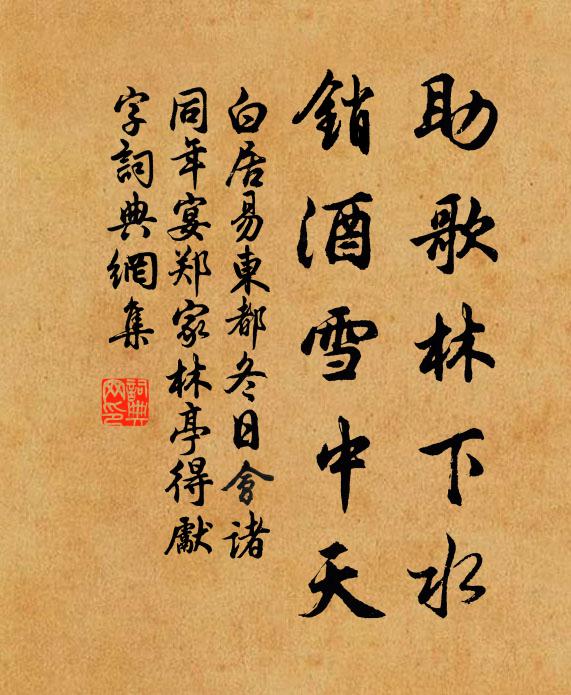 助歌林下水
銷酒雪中天
白居易東都冬日會諸
同年宴郑家林亭得獻
字詞典網集
詞典
网印